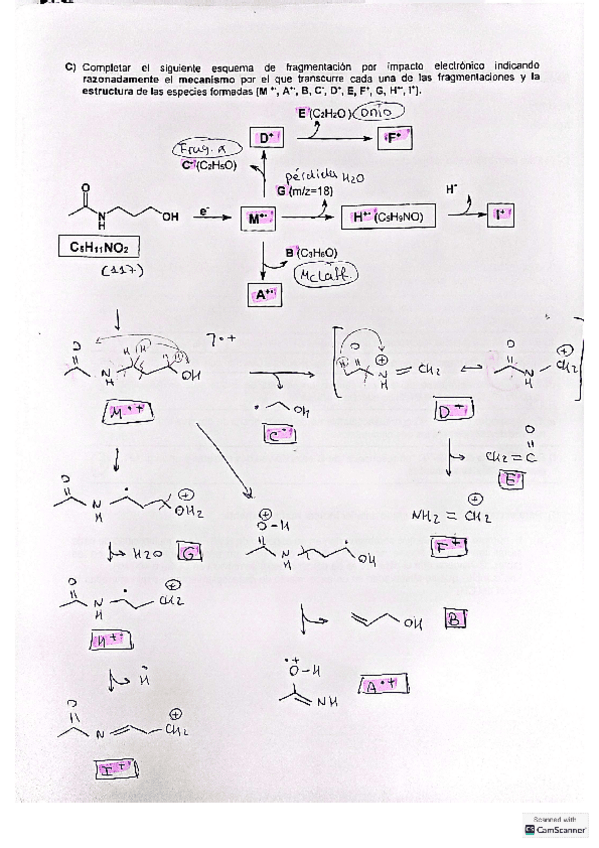 C) Completar el siguiente esquema de fragmentación por impacto electrónico indicando
razonadamente el mecanismo por el que transcurre cada una de las fragmentaciones y la
estructura de las especies formadas (M⁺•, A⁺•, B, C•, D⁺, E, F⁺, G, H⁺•, I⁺).
E (C₂H₂O) Onio
D⁺
F⁺
Frag. α
C• (C₂H₅O)
pérdida H₂O
G (m/z=18)
H•
O
N
H
OH
e⁻
M⁺•
H⁺• (C₅H₉NO)
I⁺
C₅H₁₁NO₂
(117)
B (C₃H₆O)
McLaff.
A⁺•
O
N
H
H
H
OH
7•+
M•+
OH
C•
O
H
⊕
N
H
= CH₂
O
N
H
⊕
CH₂
D⁺
O
CH₂ = C
E
NH₂ = CH₂
⊕
F⁺
O
N
H
⊕
OH₂
H₂O
G
⊕
O-H
N
H
OH
O
N
H
⊕
CH₂
H•+
OH
B
H•
•+
O-H
NH
A•+
O
N
⊕
CH₂
I⁺
Scanned with
CS CamScanner